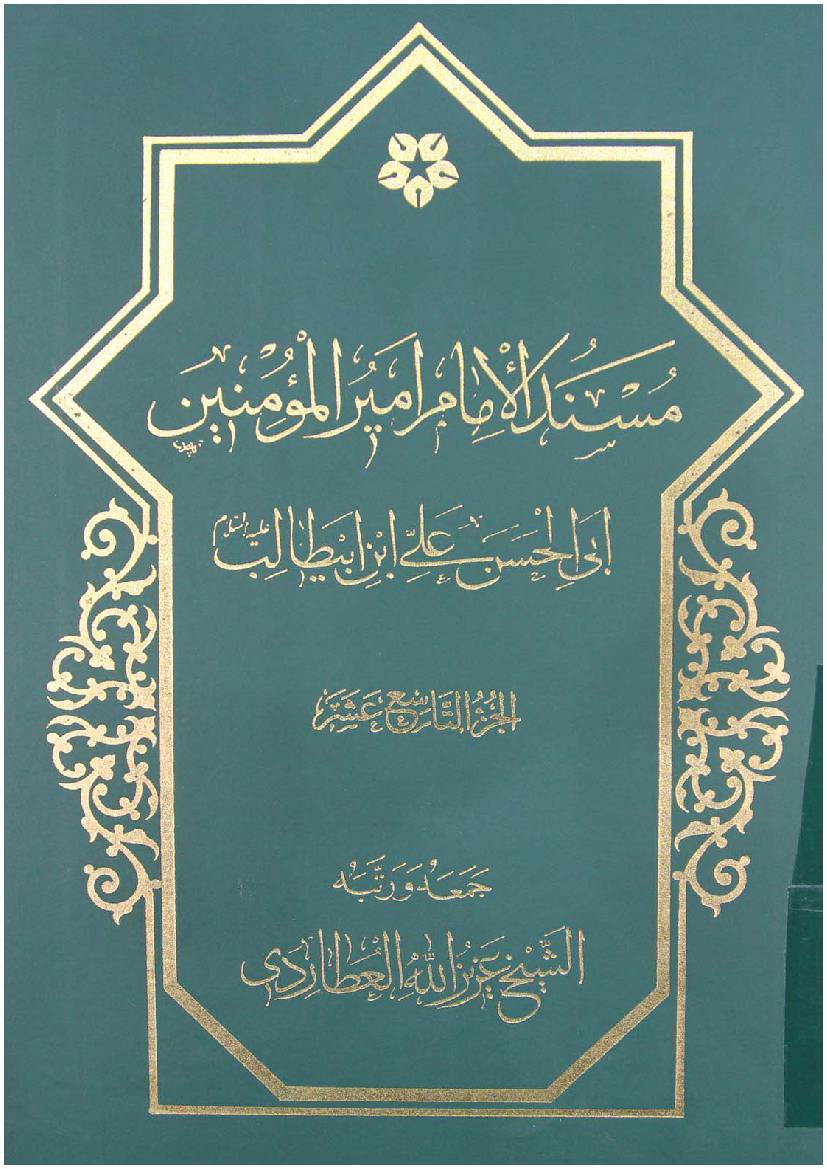 مُسْنَدُ الْإِمَامِ اَمِيرُ الْمُؤْمِنِينَ
اَبِي الْحَسَنِ عَلِيِّ ابْنِ ابيطالِبْ عليه السلام
الجُزءُ التَّاسِعْ عَشَرَ
جَمَعَهُ وَرَتَّبَهُ
الشَّيْخ عَزِيزُ اللهِ الْعُطَارِدِى